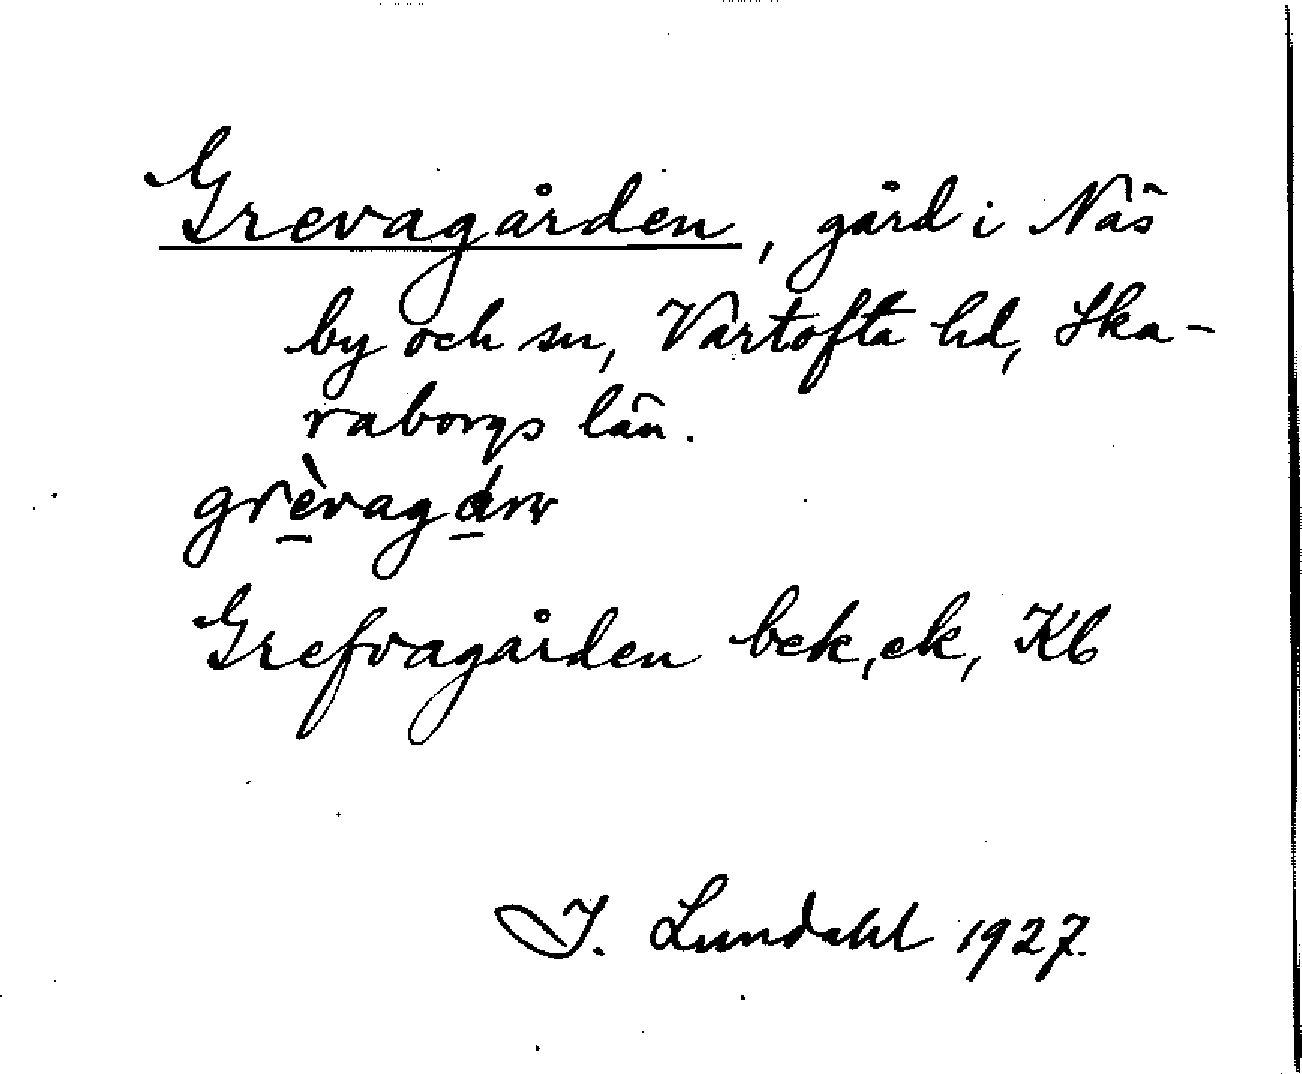 Grevagården, gård i Näs
by och sn, Vartofta hd, Ska-
raborgs län.
Grefvagården bek, ek, Kb
I. Lundahl 1927.